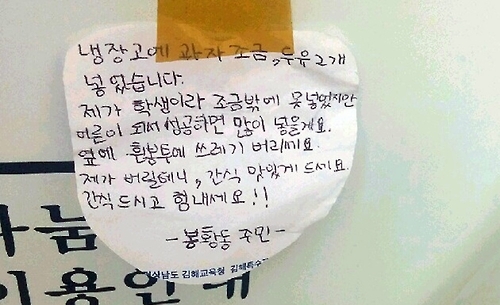 냉장고에 과자 조금, 두유 2개
넣었습니다.
제가 학생이라 조금밖에 못넣었지만
어른이 되서 성공하면 많이 넣을게요.
옆에 흰봉투에 쓰레기 버리세요.
제가 버릴테니, 간식 맛있게 드세요.
간식드시고 힘내세요!!
-봉황동 주민-
경상남도 김해교육청 김해특수
나눔
이용안내